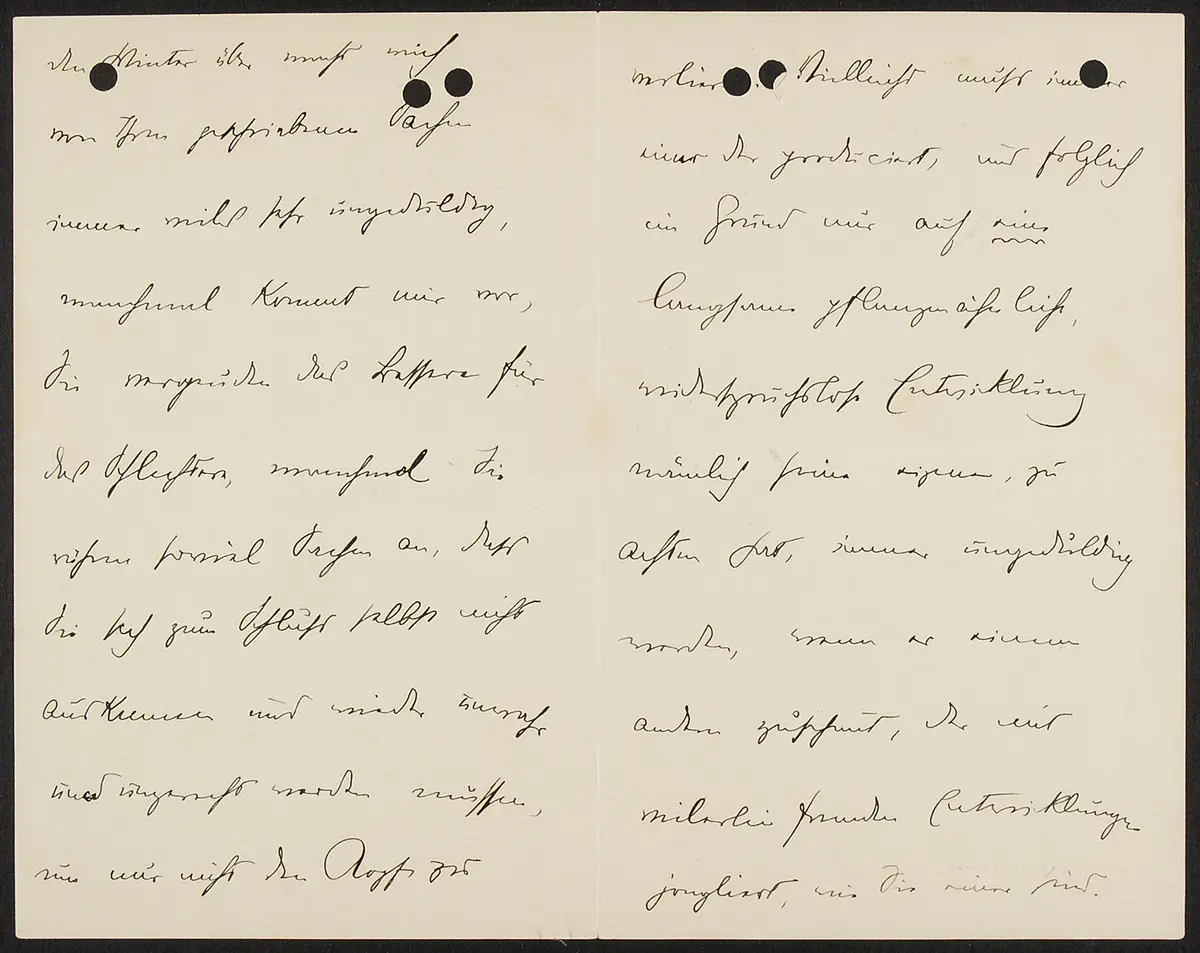 den Winter über macht mich
von Ihren geschriebenen Sachen
immer vieles sehr ungeduldig,
manchmal kommt mir vor,
Sie vergeuden das Bessere für
das Schlechtere, manchmal Sie
rühren soviel Sachen an, dass
Sie sich zum Schluss selbst nicht
auskennen und wieder unwahr
und ungerecht werden müssen,
um nur nicht den Kopf zu
verlieren. Vielleicht muss immer
einer der produciert, und folglich
im Grund nur auf eine
langsame pflanzenähnliche,
widerspruchslose Entwicklung
nämlich seine eigene, zu
achten hat, immer ungeduldig
werden, wenn er einem
andern zuschaut, der mit
vielerlei fremden Entwicklungen
jongliert, wie Sie einer sind.